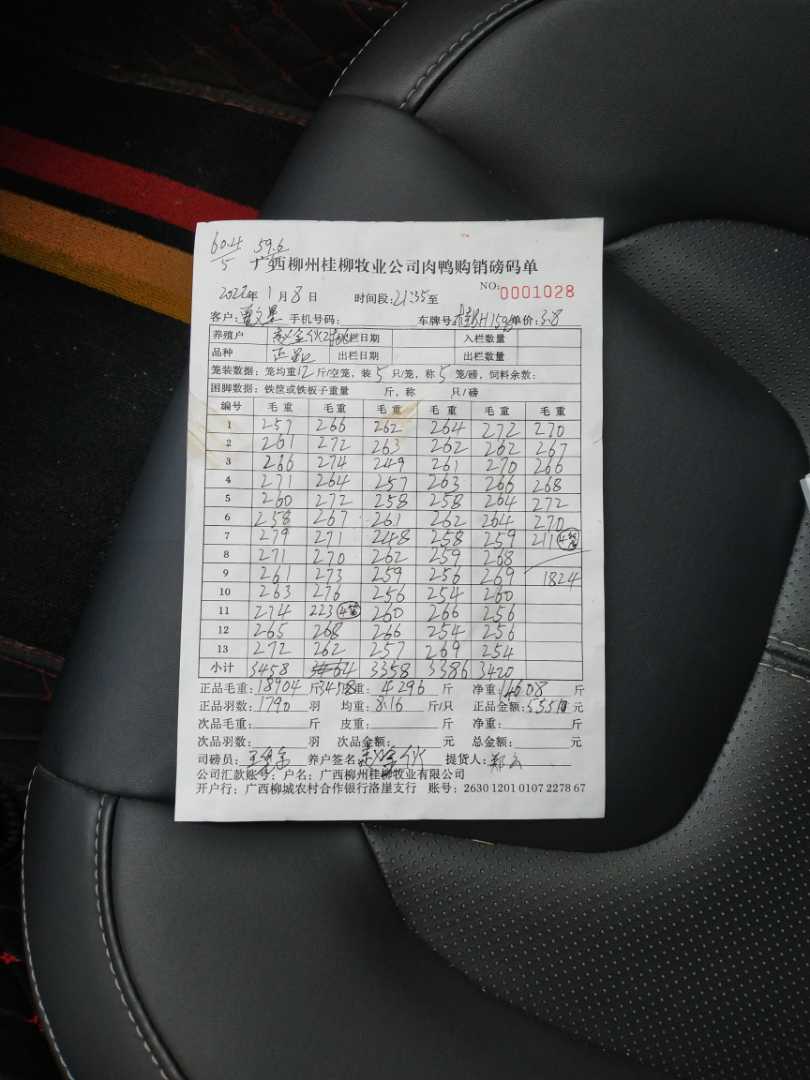 60.4 59.6
5
广西柳州桂柳牧业公司肉鸭购销磅码单
2022年 1 月 8 日 时间段: 21:35至 NO: 0001028
客户: 手机号码: 车牌号: 单价: 3.8
养殖户 栏日期 入栏数量
品种 出栏日期 出栏数量
笼装数据: 笼均重12斤/空笼, 装 5 只/笼, 称 5 笼/磅, 饲料余数:
困脚数据: 铁筐或铁板子重量 斤, 称 只/磅
编号 毛 重 毛 重 毛 重 毛 重 毛 重 毛 重
1 257 266 262 264 272 270
2 261 272 263 262 262 267
3 266 274 249 261 270 266
4 271 264 257 263 266 268
5 260 272 258 258 264 272
6 258 267 261 262 264 270
7 279 271 248 258 259 211 4笼
8 271 270 262 259 268
9 261 273 259 256 269 1824
10 263 276 256 254 260
11 274 223 4笼 260 266 256
12 265 268 266 254 256
13 272 262 257 269 254
小计 3458 3358 3386 3420
正品毛重: 18904 斤 3458 皮重: 4296 斤 净重: 14608 斤
正品羽数: 1790 羽 均重: 8.16 斤/只 正品金额: 元
次品毛重: 斤 皮重: 斤 净重: 斤
次品羽数: 羽 次品金额: 元 总金额: 元
司磅员: 养户签名: 提货人:
公司汇款账号: 户名: 广西柳州桂柳牧业有限公司
开户行: 广西柳城农村合作银行洛崖支行 账号: 2630 1201 0107 2278 67